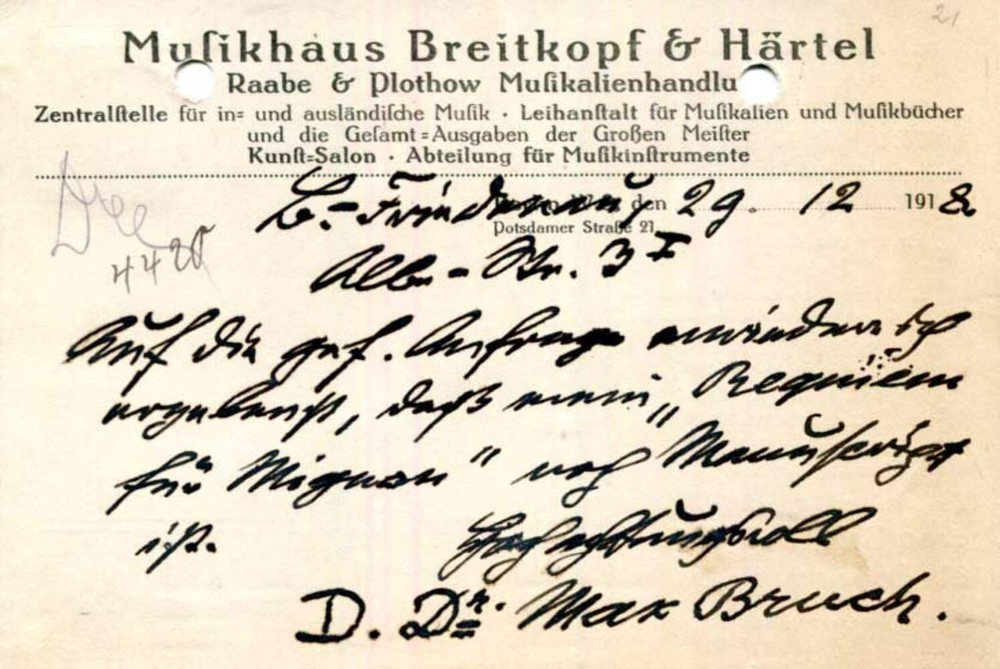 21
Muſikhaus Breitkopf & Härtel
Raabe & Plothow Muſikalienhandlu
Zentralſtelle für in= und ausländiſche Muſik · Leihanſtalt für Muſikalien und Muſikbücher
und die Geſamt=Ausgaben der Großen Meiſter
Kunſt=Salon · Abteilung für Muſikinſtrumente
B.-Friedenau, den 29. 12 1918.
Potsdamer Straße 21
4420
Albe-Str. 3 I
Auf die gef. Anfrage erwiedere ich
ergebenst, daß mein „Requiem
für Mignon" noch Manuscript
ist. Hochachtungsvoll
D. Dr. Max Bruch.